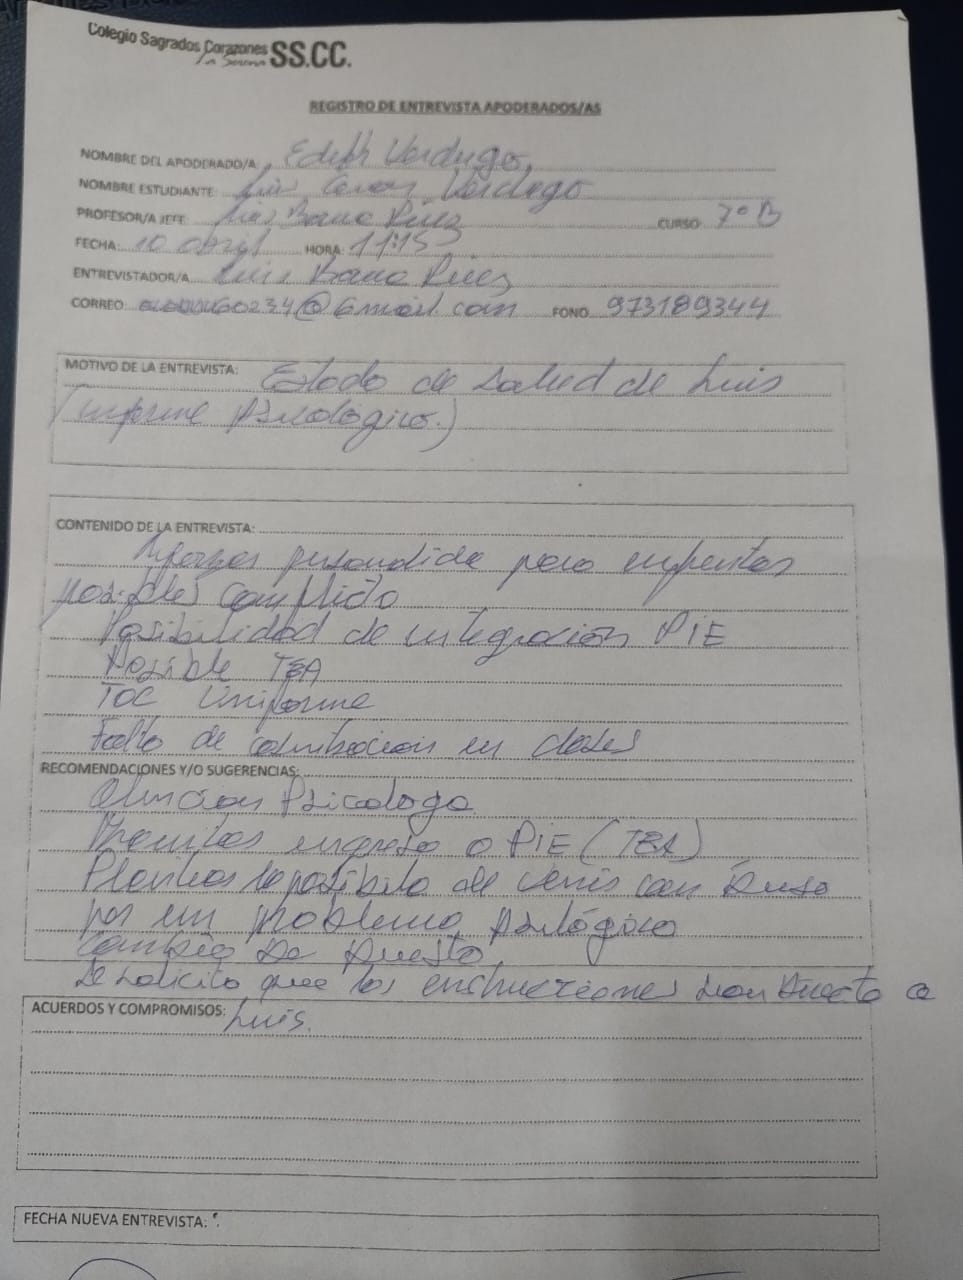 Colegio Sagrados Corazones SS.CC.
La Serena
REGISTRO DE ENTREVISTA APODERADOS/AS
NOMBRE DEL APODERADO/A: Edith Verdugo
NOMBRE ESTUDIANTE: Luis Verdugo
PROFESOR/A JEFE: Luis CURSO: 7º B
FECHA: 10 abril HORA: 11:15
ENTREVISTADOR/A: Luis
CORREO: 60234@Gmail.com FONO: 973189344
MOTIVO DE LA ENTREVISTA: Estado de salud de Luis
(informe Psicológico.)
CONTENIDO DE LA ENTREVISTA:
para
posibles
Posibilidad de integración PIE
Posible TEA
TOC Uniforme
Falta de en clases
RECOMENDACIONES Y/O SUGERENCIAS:
Psicologo
ingreso a PIE (TEA)
de venir con Buzo
por un problema Psicológico
Cambio De Puesto
Se solicita que las sean directo a
ACUERDOS Y COMPROMISOS: Luis.
FECHA NUEVA ENTREVISTA: